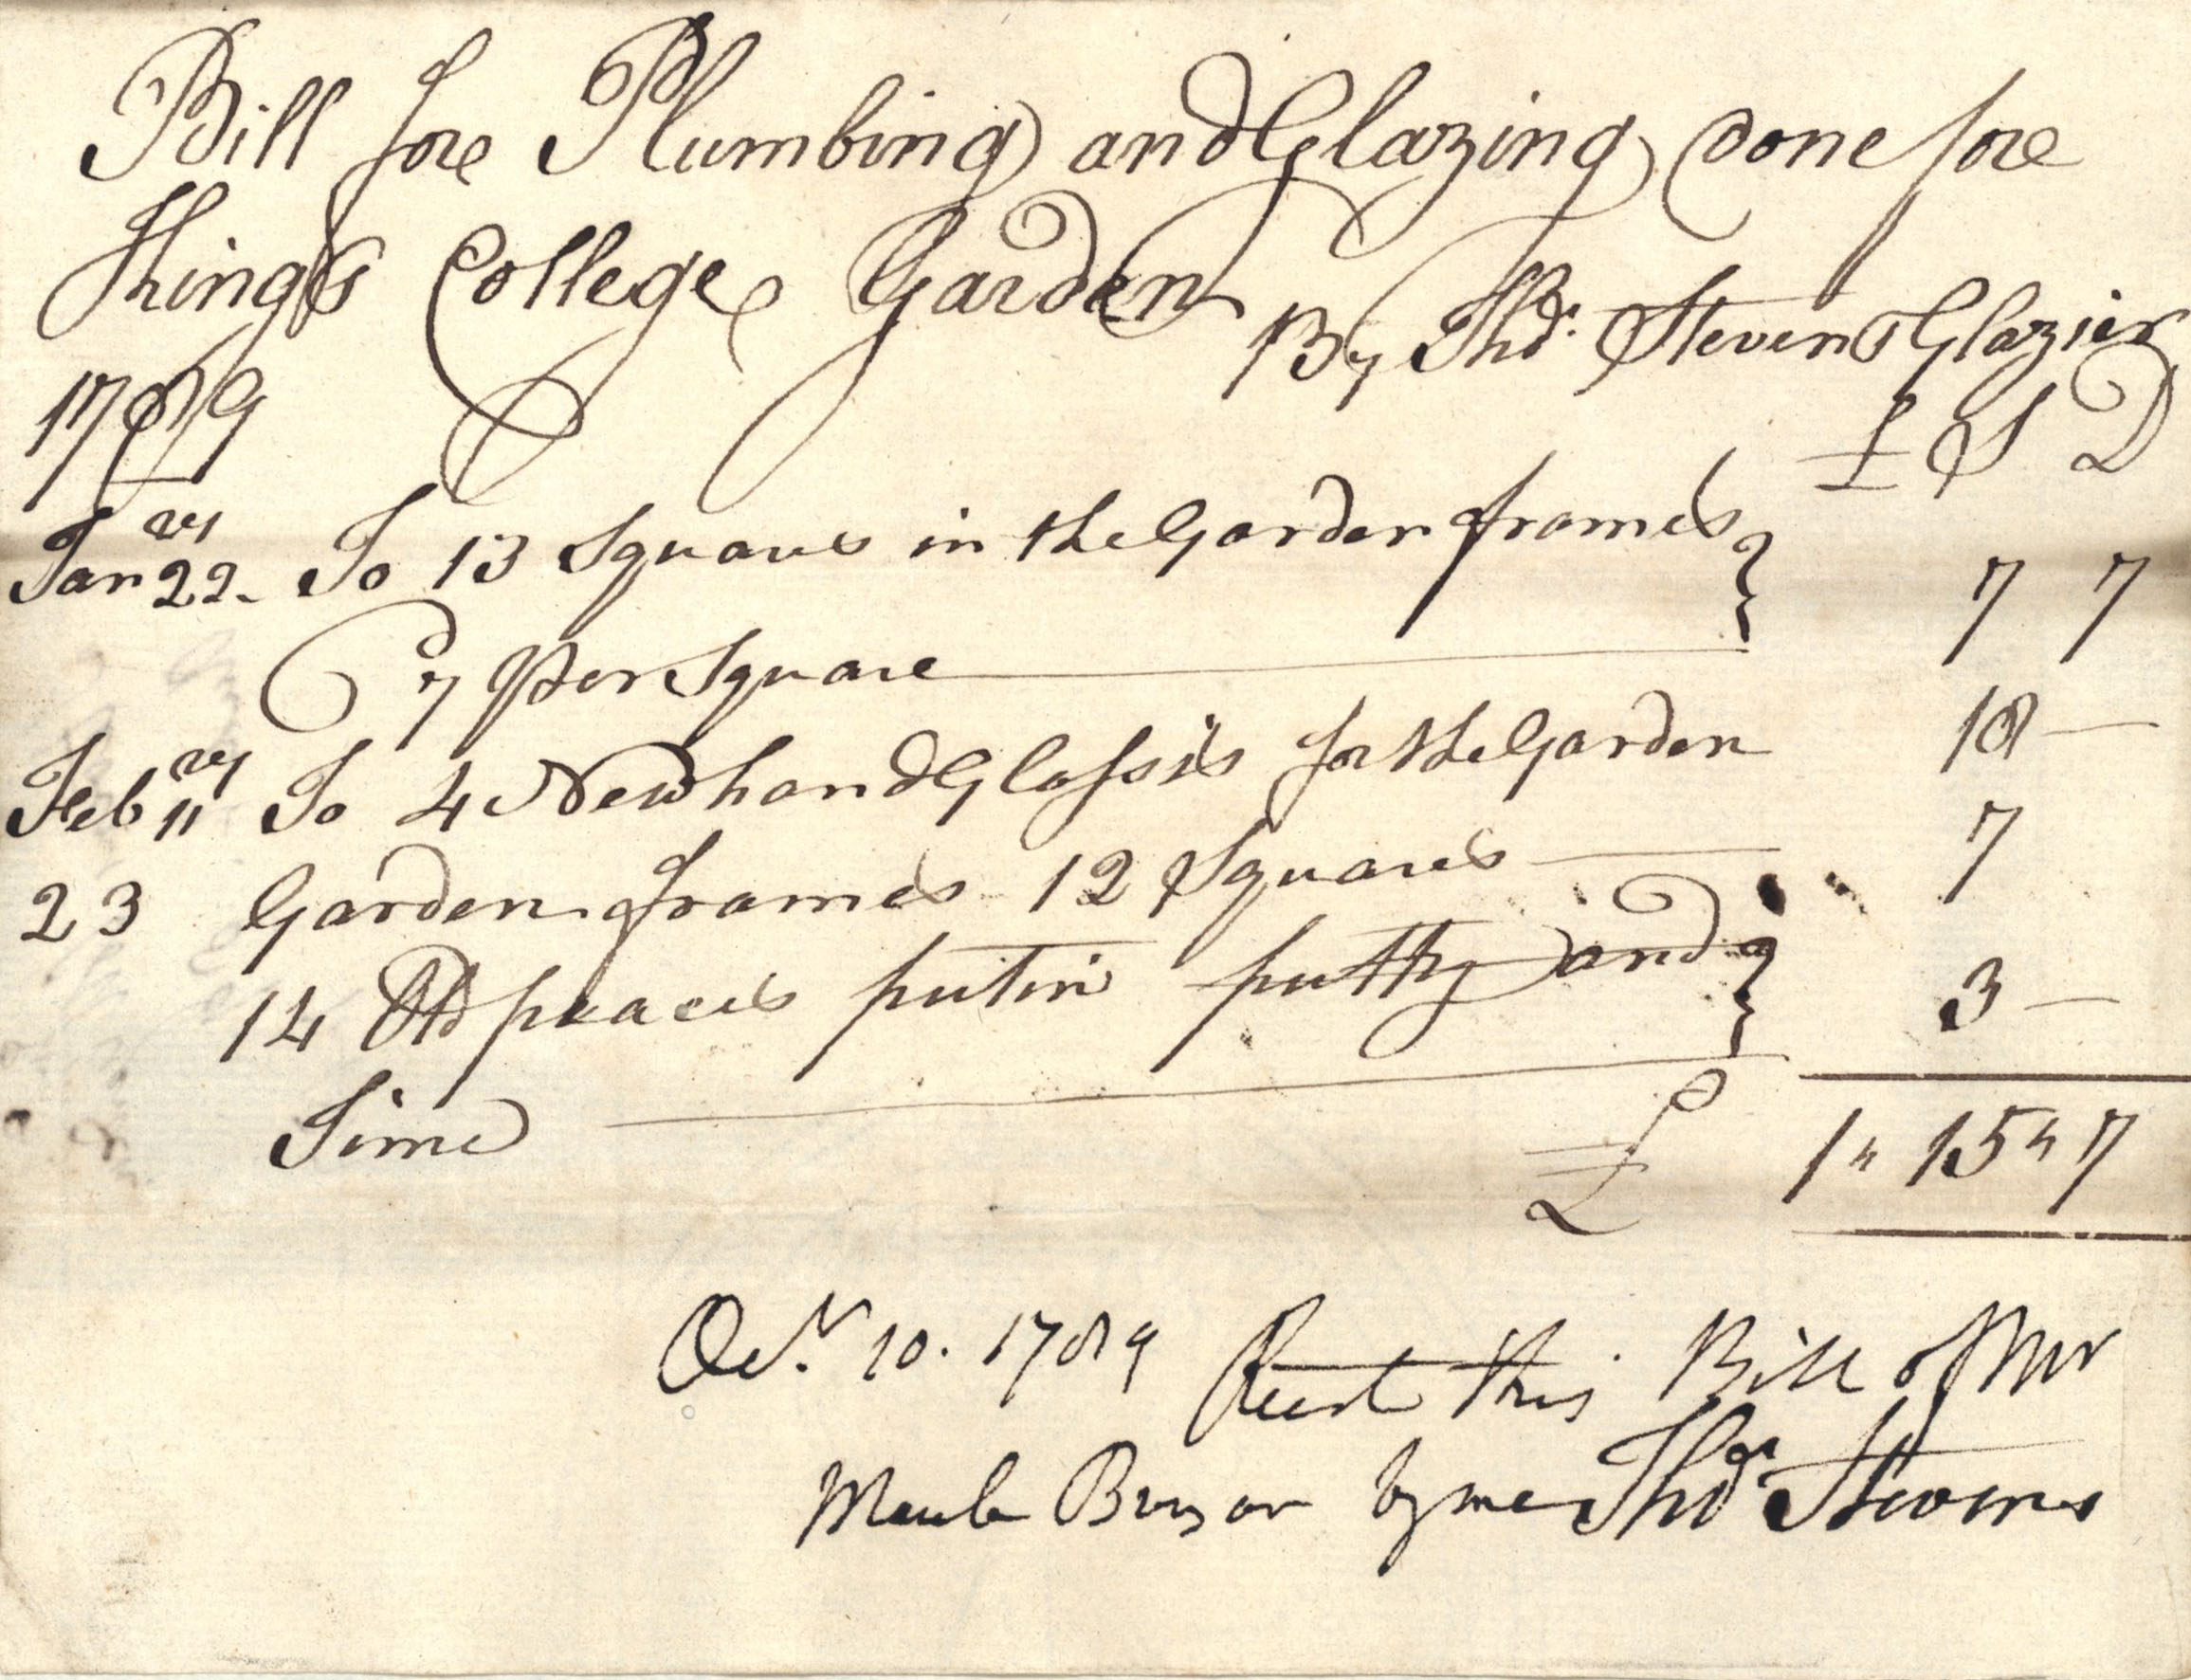 Bill fore Plumbing and Glazing done fore
King's College Garden By Thos. Stevens Glazier
1789 £ S D
Janry 22. To 13 Squares in the Garden frames } 7 7
@ 7 Per Square
Febry 11 To 4 New hand Glassis for the Garden 18 —
23 Garden frames 12 Squares — 7
14 Old peaces putin putty and } 3 —
Time
£ 1 " 15 " 7
Octr. 10. 1789 Recd this Bill of Mr
Maule Bursar by me Thos. Stevens